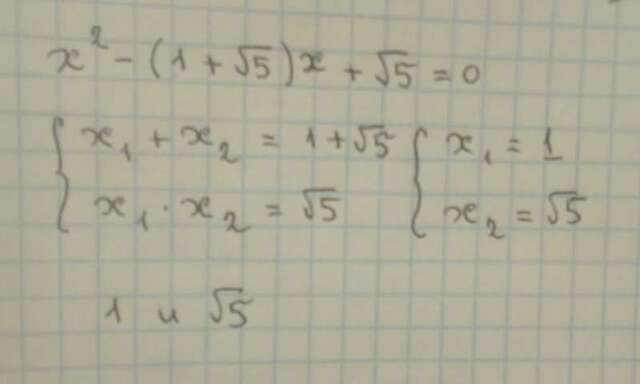 x² - (1 + √5)x + √5 = 0
{ x₁ + x₂ = 1 + √5 { x₁ = 1
x₁ · x₂ = √5 x₂ = √5
1 и √5